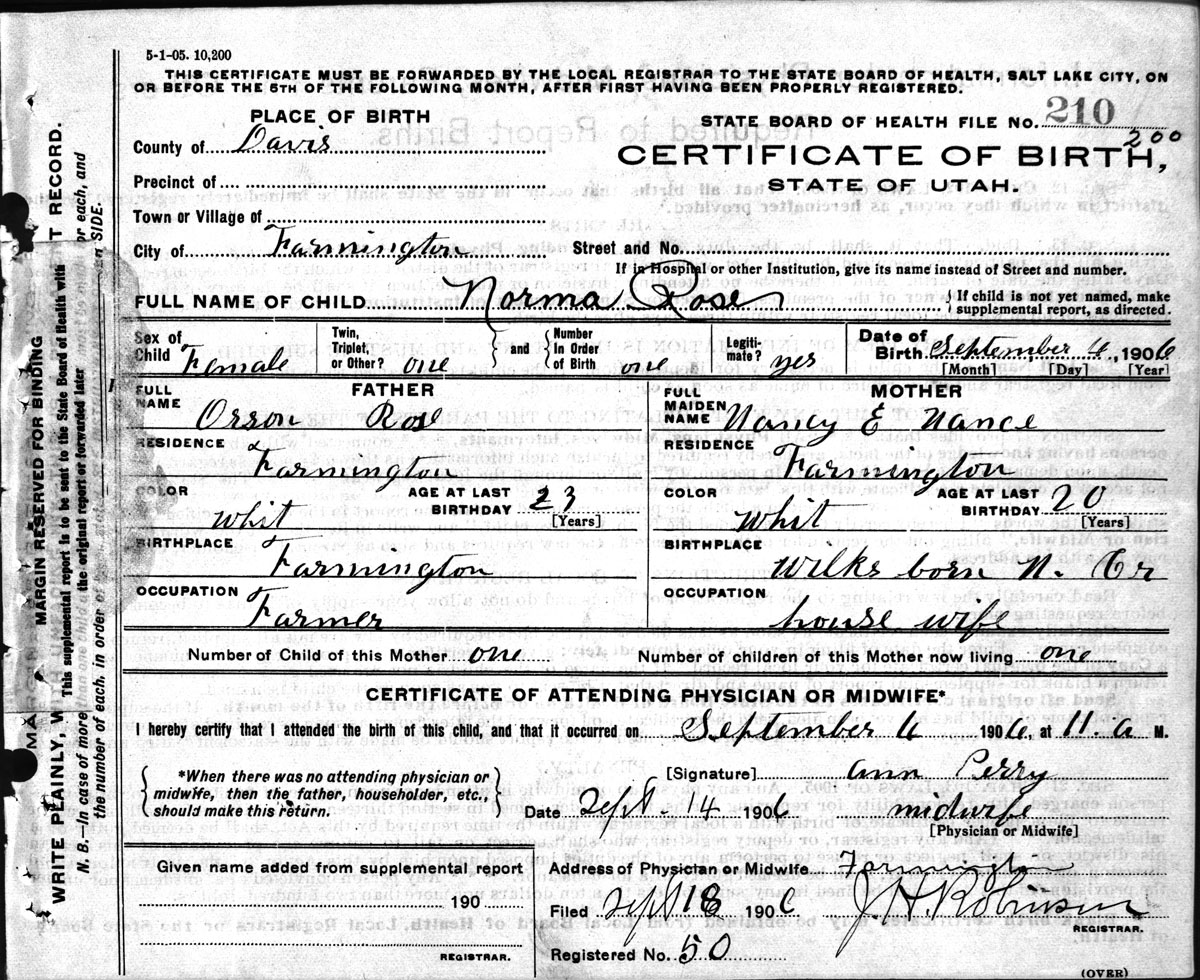 5-1-05. 10,200
THIS CERTIFICATE MUST BE FORWARDED BY THE LOCAL REGISTRAR TO THE STATE BOARD OF HEALTH, SALT LAKE CITY, ON
OR BEFORE THE 5TH OF THE FOLLOWING MONTH, AFTER FIRST HAVING BEEN PROPERLY REGISTERED.
PLACE OF BIRTH
County of Davis
Precinct of
Town or Village of
City of Farmington
STATE BOARD OF HEALTH FILE NO. 210
200
CERTIFICATE OF BIRTH,
STATE OF UTAH.
Street and No.
If in Hospital or other Institution, give its name instead of Street and number.
FULL NAME OF CHILD Norma Rose
{ If child is not yet named, make
supplemental report, as directed.
Sex of Child Female
Twin, Triplet, or Other? one
and
Number In Order of Birth one
Legiti-mate? yes
Date of Birth September 6, 1906
[Month] [Day] [Year]
FATHER
FULL NAME Orson Rose
RESIDENCE Farmington
COLOR Whit
AGE AT LAST BIRTHDAY 23 [Years]
BIRTHPLACE Farmington
OCCUPATION Farmer
MOTHER
FULL MAIDEN NAME Nancy E Nance
RESIDENCE Farmington
COLOR Whit
AGE AT LAST BIRTHDAY 20 [Years]
BIRTHPLACE Wilks born N.
OCCUPATION house wife
Number of Child of this Mother one
Number of children of this Mother now living one
CERTIFICATE OF ATTENDING PHYSICIAN OR MIDWIFE*
I hereby certify that I attended the birth of this child, and that it occurred on September 6 1906, at 11. a M.
{ *When there was no attending physician or
midwife, then the father, householder, etc.,
should make this return. }
[Signature] Ann Perry
Date Sept. 14 1906 midwife
[Physician or Midwife]
Given name added from supplemental report
190
REGISTRAR.
Address of Physician or Midwife Farmington
Filed Sept 18 1906 J. H Robinson
REGISTRAR.
Registered No. 50
(OVER)
MARGIN RESERVED FOR BINDING
This supplemental report is to be sent to the State Board of Health with
the original report or forwarded later
WRITE PLAINLY, WITH
T RECORD.
N. B.—In case of more than one child
or each, and
the number of each, in order of
SIDE.